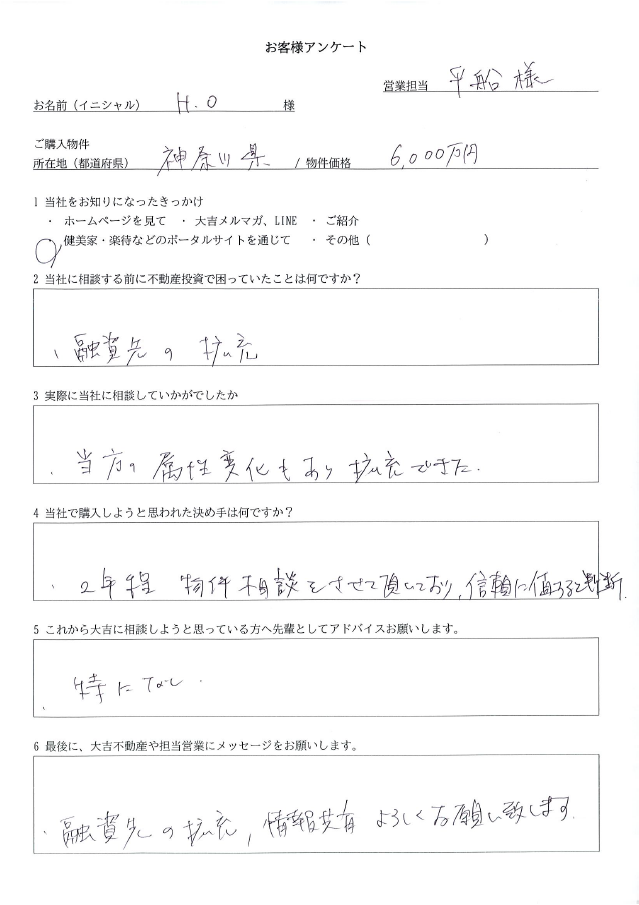 お客様アンケート
営業担当 平船 様
お名前（イニシャル） H.O 様
ご購入物件
所在地（都道府県） 神奈川県 / 物件価格 6,000万円
1 当社をお知りになったきっかけ
・ ホームページを見て ・ 大吉メルマガ、LINE ・ ご紹介
健美家・楽待などのポータルサイトを通じて ・ その他（ ）
2 当社に相談する前に不動産投資で困っていたことは何ですか？
、融資先の拡充
3 実際に当社に相談していかがでしたか
・当方の属性変化もあり拡充できた.
4 当社で購入しようと思われた決め手は何ですか？
・2年程 物件相談をさせて頂いており,信頼に値すると判断.
5 これから大吉に相談しようと思っている方へ先輩としてアドバイスお願いします。
、特になし.
6 最後に、大吉不動産や担当営業にメッセージをお願いします。
・融資先の拡充,情報共有よろしくお願い致します.